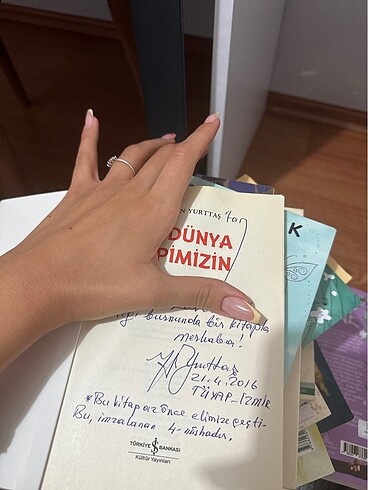 N YURTTAŞ
DÜNYA
PİMİZİN
K
burnunda bir kitapla
merhaba!
21.4.2016
TÜYAP-İZMİR
*Bu kitap az önce elimize geçti-
Bu, imzalanan 4. nüshadır.
TÜRKİYE İŞ BANKASI
Kültür Yayınları